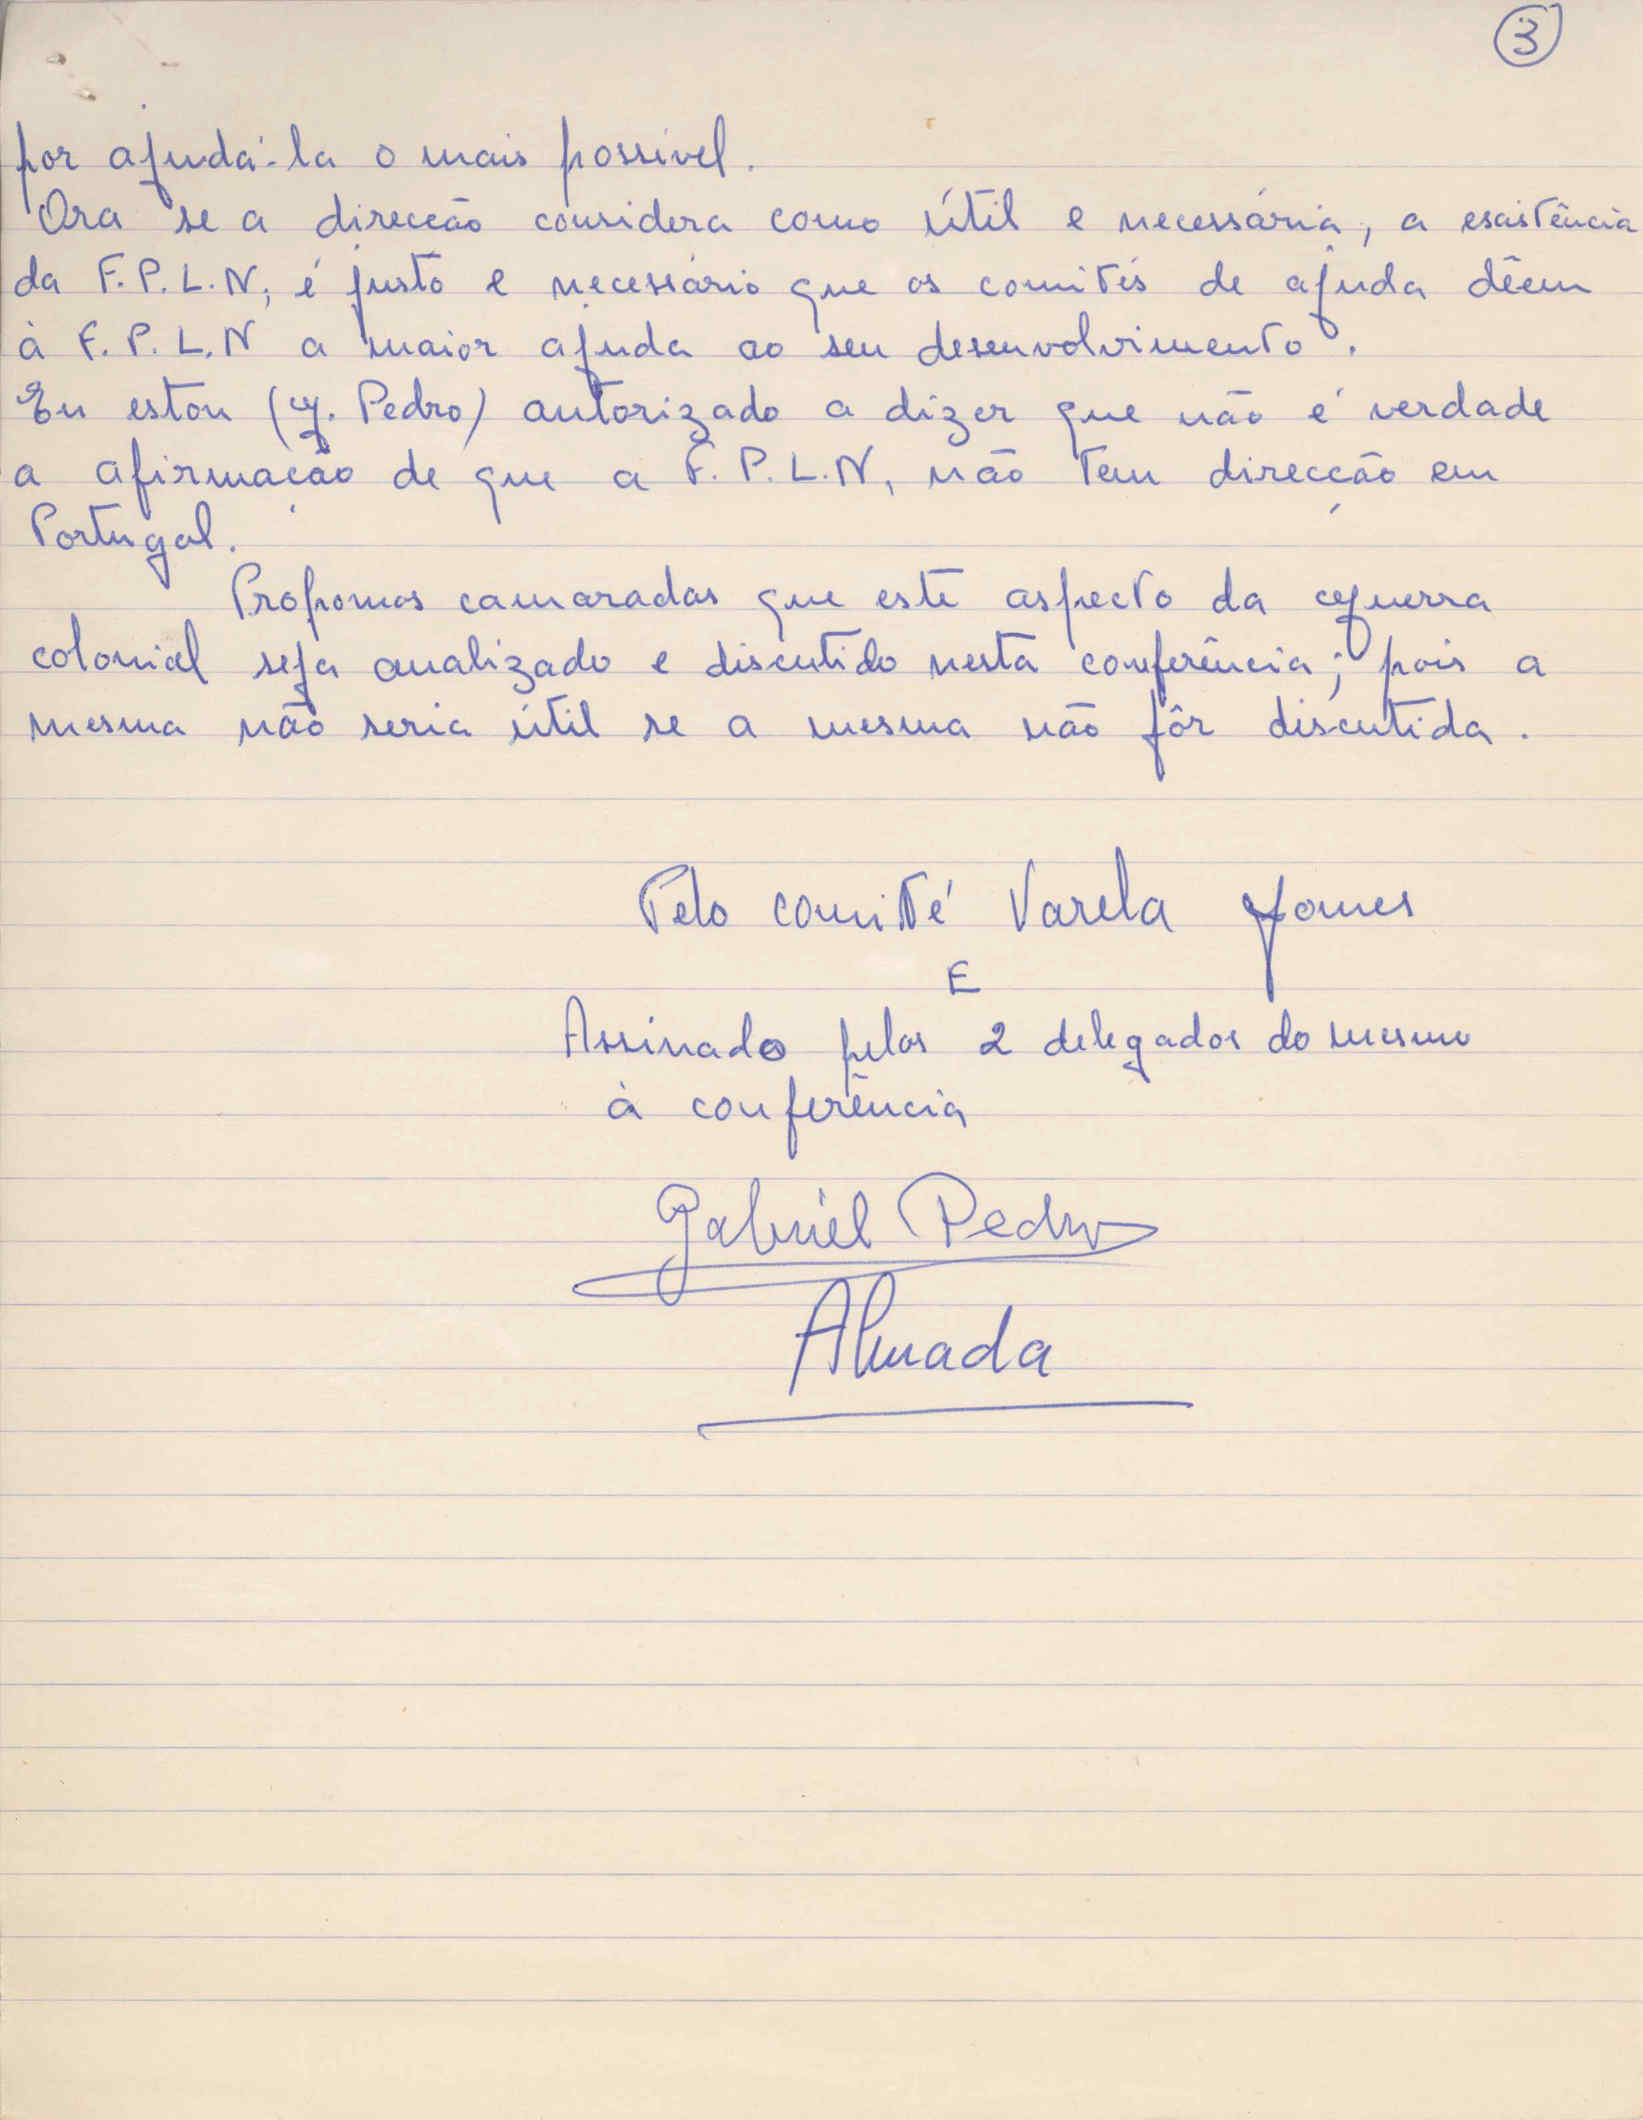 3
por ajudá-la o mais possível.
Ora se a direcção considera como útil e necessária, a escistência
da F.P.L.N, é justo e necessário que os comités de ajuda dêem
à F.P.L.N a maior ajuda ao seu desenvolvimento.
Eu estou (g. Pedro) autorizado a dizer que não é verdade
a afirmação de que a F.P.L.N, não tem direcção em
Portugal.
Propomos camaradas que este aspecto da guerra
colonial seja analizado e discutido nesta conferência; pois a
mesma não seria útil se a mesma não fôr discutida.
Pelo comité Varela Gomes
E
Assinado pelos 2 delegados do mesmo
à conferência
Gabriel Pedro
Almada